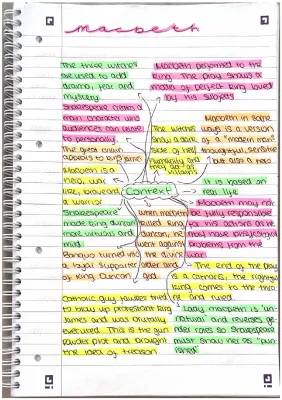 Macbeth
The three witches
are used to add
drama, fear and
mystery
Shakespeare creates a
main character who
audiences can relate
to personally
The great chain
appeals to king James
Macbeth is a
hero, war
like, loyal and
a warrior
Shakespeare
made king Duncan
more virtuous and
Banquo turned into
a loyal supporter
of King Duncan
Macbeth performed to the
king. The play shows a
model of perfect king loved
by his subjects
The witches
show a dark
side of
humanity and
they act as
villains
Macbeth in some
ways is a version
of a "modern man"
thoughtful, sensitive
but also a hero
Context
It is based on
real life
Macbeth may not
be fully responsible
for his actions as he
may have psychological
problems from the
war
when macbeth
killed king
Duncan, he
went against
the divine
order and
god
The end of the play
is a climatic, the rightful
king comes to the throne
and ruled.
Catholic guy fawkes tried
to blow up protestant king
James and was brutally
executed. This is the gun
powder plot and brought
the idea of treason
Lady macbeth is "un-
natural and reverses ge-
nder roles so Shakespeare
must show her as "pun-
ished"